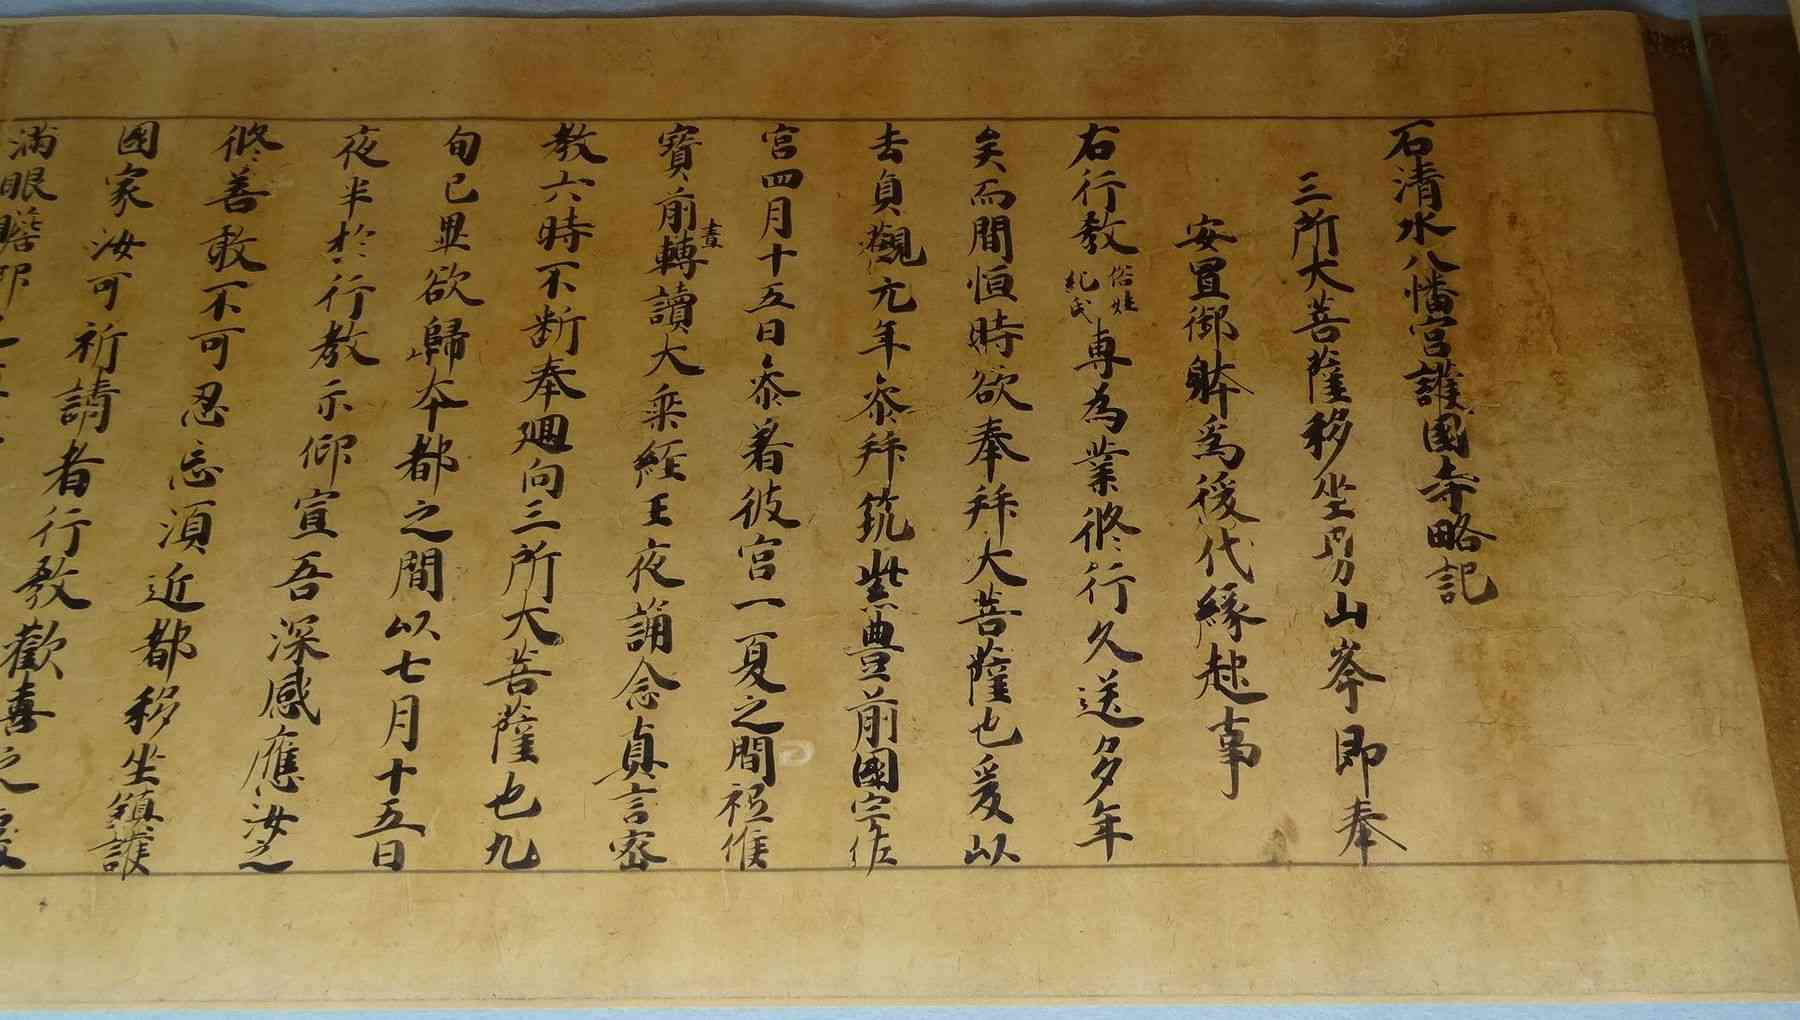 石清水八幡宮護國寺略記
三所大菩薩移坐男山峯即奉
安置御躰為後代緣起事
右行教俗姓紀氏専為業修行久送多年
矣而間恒時欲奉拜大菩薩也爰以
去貞觀元年参拜筑紫豊前國宇佐
宮四月十五日参着彼宮一夏之間祗候
寳前晝轉讀大乘經王夜誦念真言密
教六時不断奉廻向三所大菩薩也九
旬已畢欲歸本都之間以七月十五日
夜半於行教示仰宣吾深感應汝之
修善敢不可忍忘須近都移坐鎮護
國家汝可祈請者行教歡喜之
滿眼瞻仰之